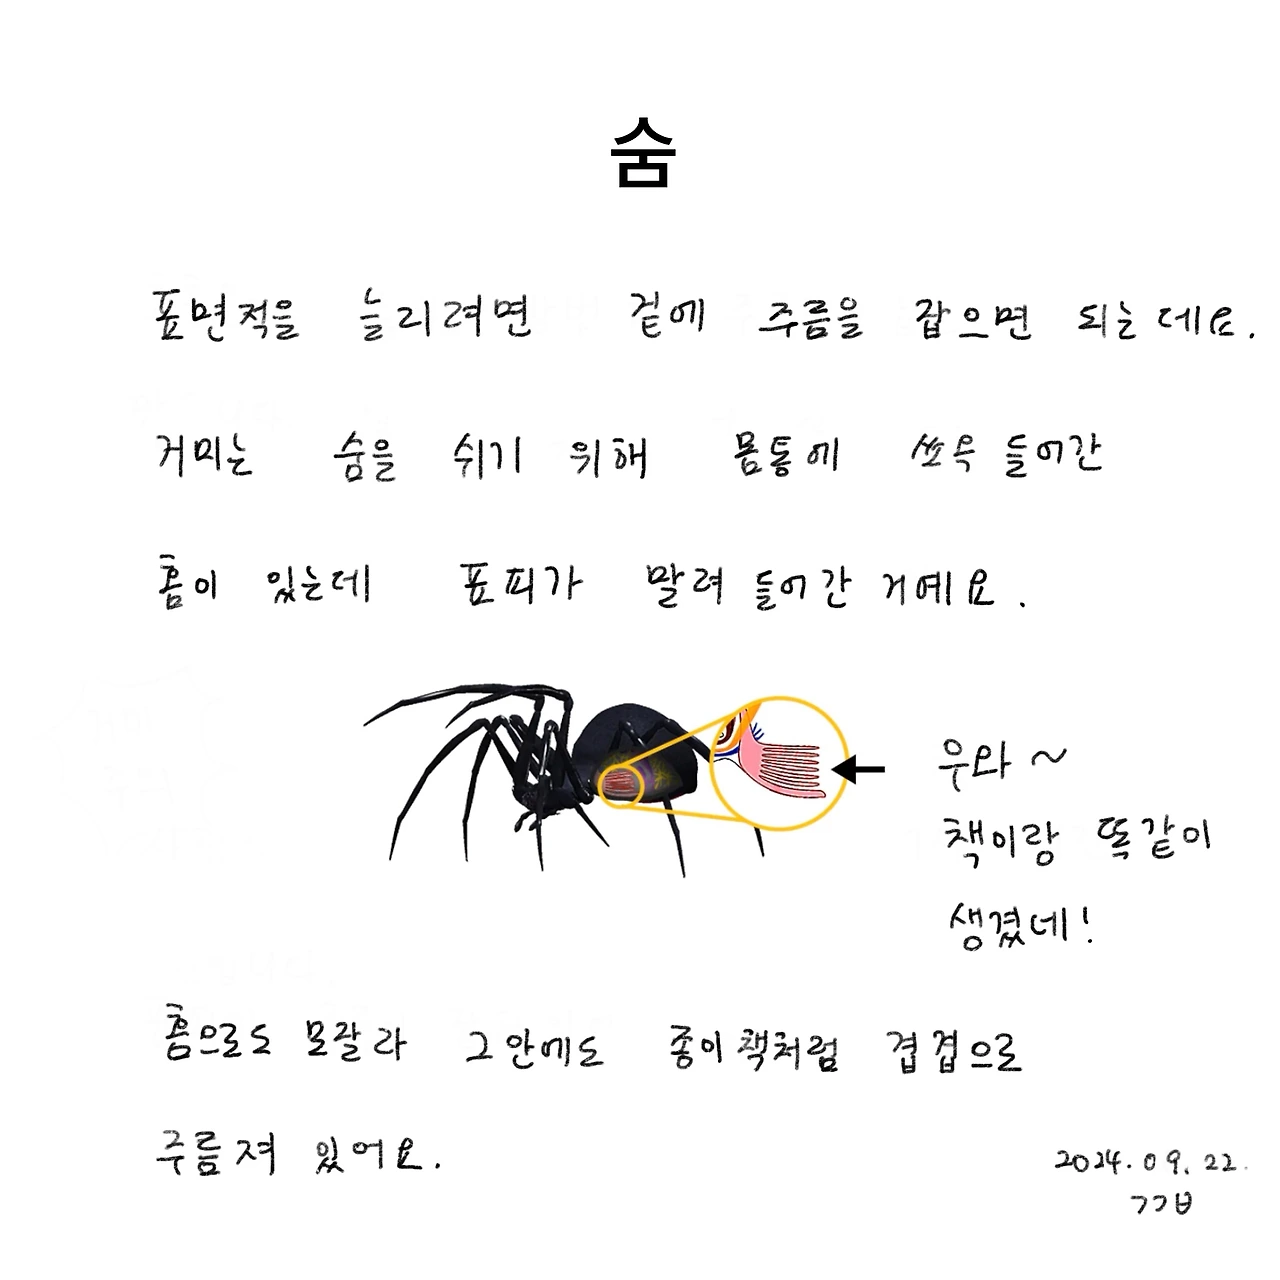 숨
표면적을 늘리려면 겉에 주름을 잡으면 되는데요.
거미는 숨을 쉬기 위해 몸통에 쏘옥 들어간
홈이 있는데 표피가 말려 들어간 거예요.
우와~
책이랑 똑같이
생겼네!
홈으로도 모잘라 그 안에도 종이책처럼 겹겹으로
주름져 있어요.
2024.09.22.
ㄱㄱㅂ